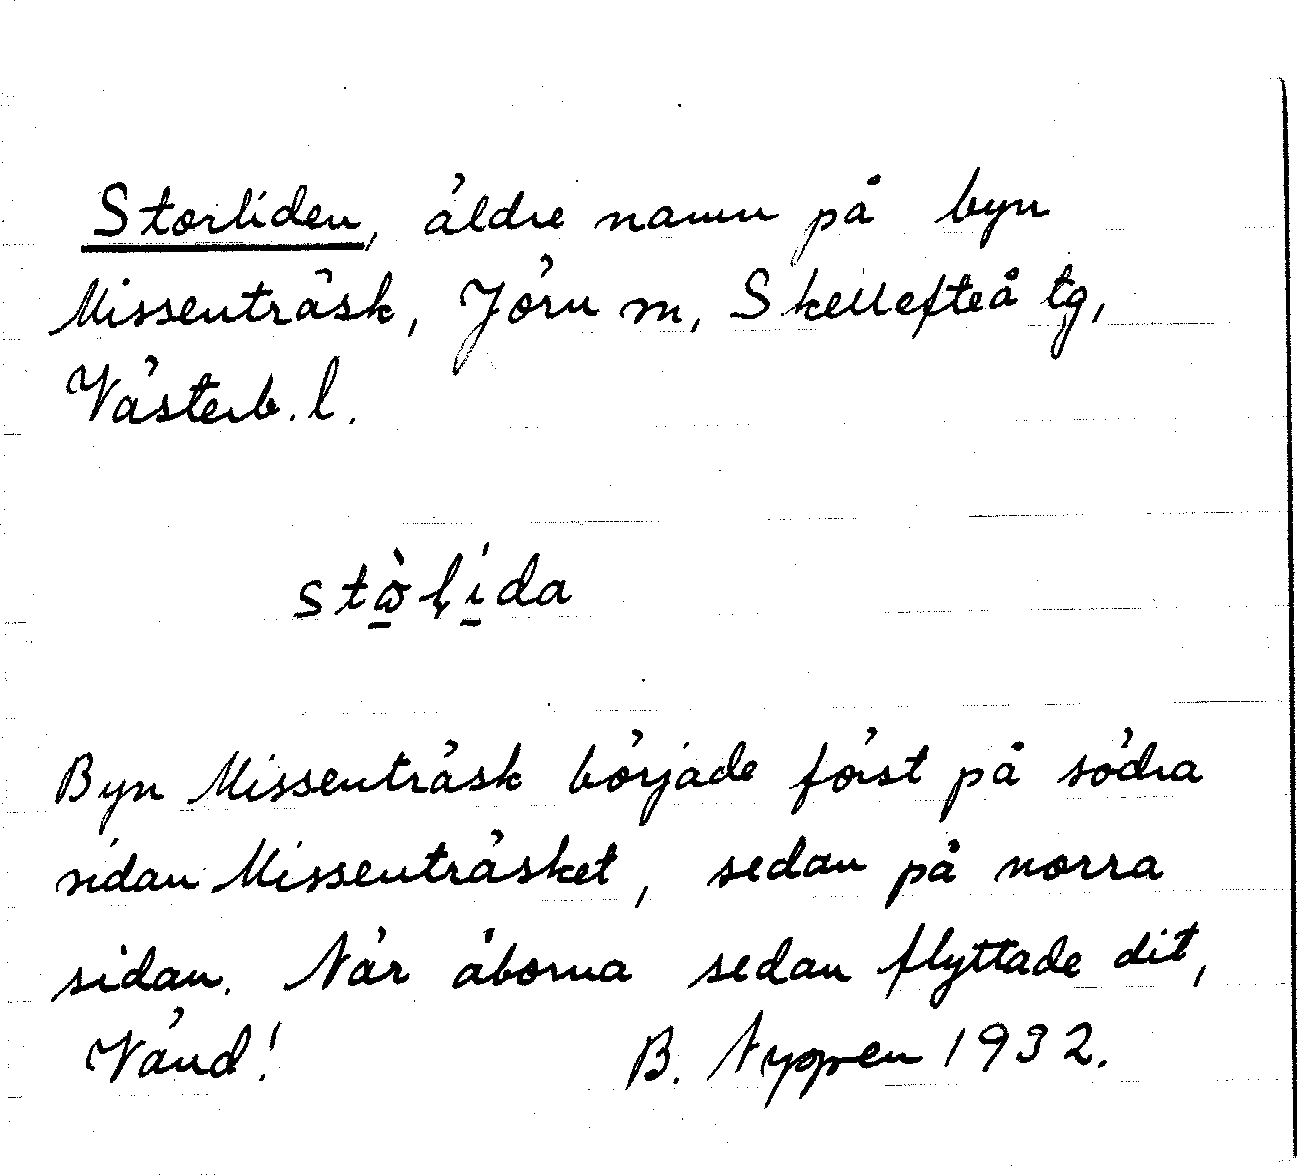 Storliden, äldre namn på byn
Missenträsk, Jörn sn, Skellefteå tg,
Västerb. l.
stò̱ḷí̱da
Byn Missenträsk började först på södra
sidan Missenträsket, sedan på norra
sidan. När åborna sedan flyttade dit,
Vänd! B. Nygren 1932.